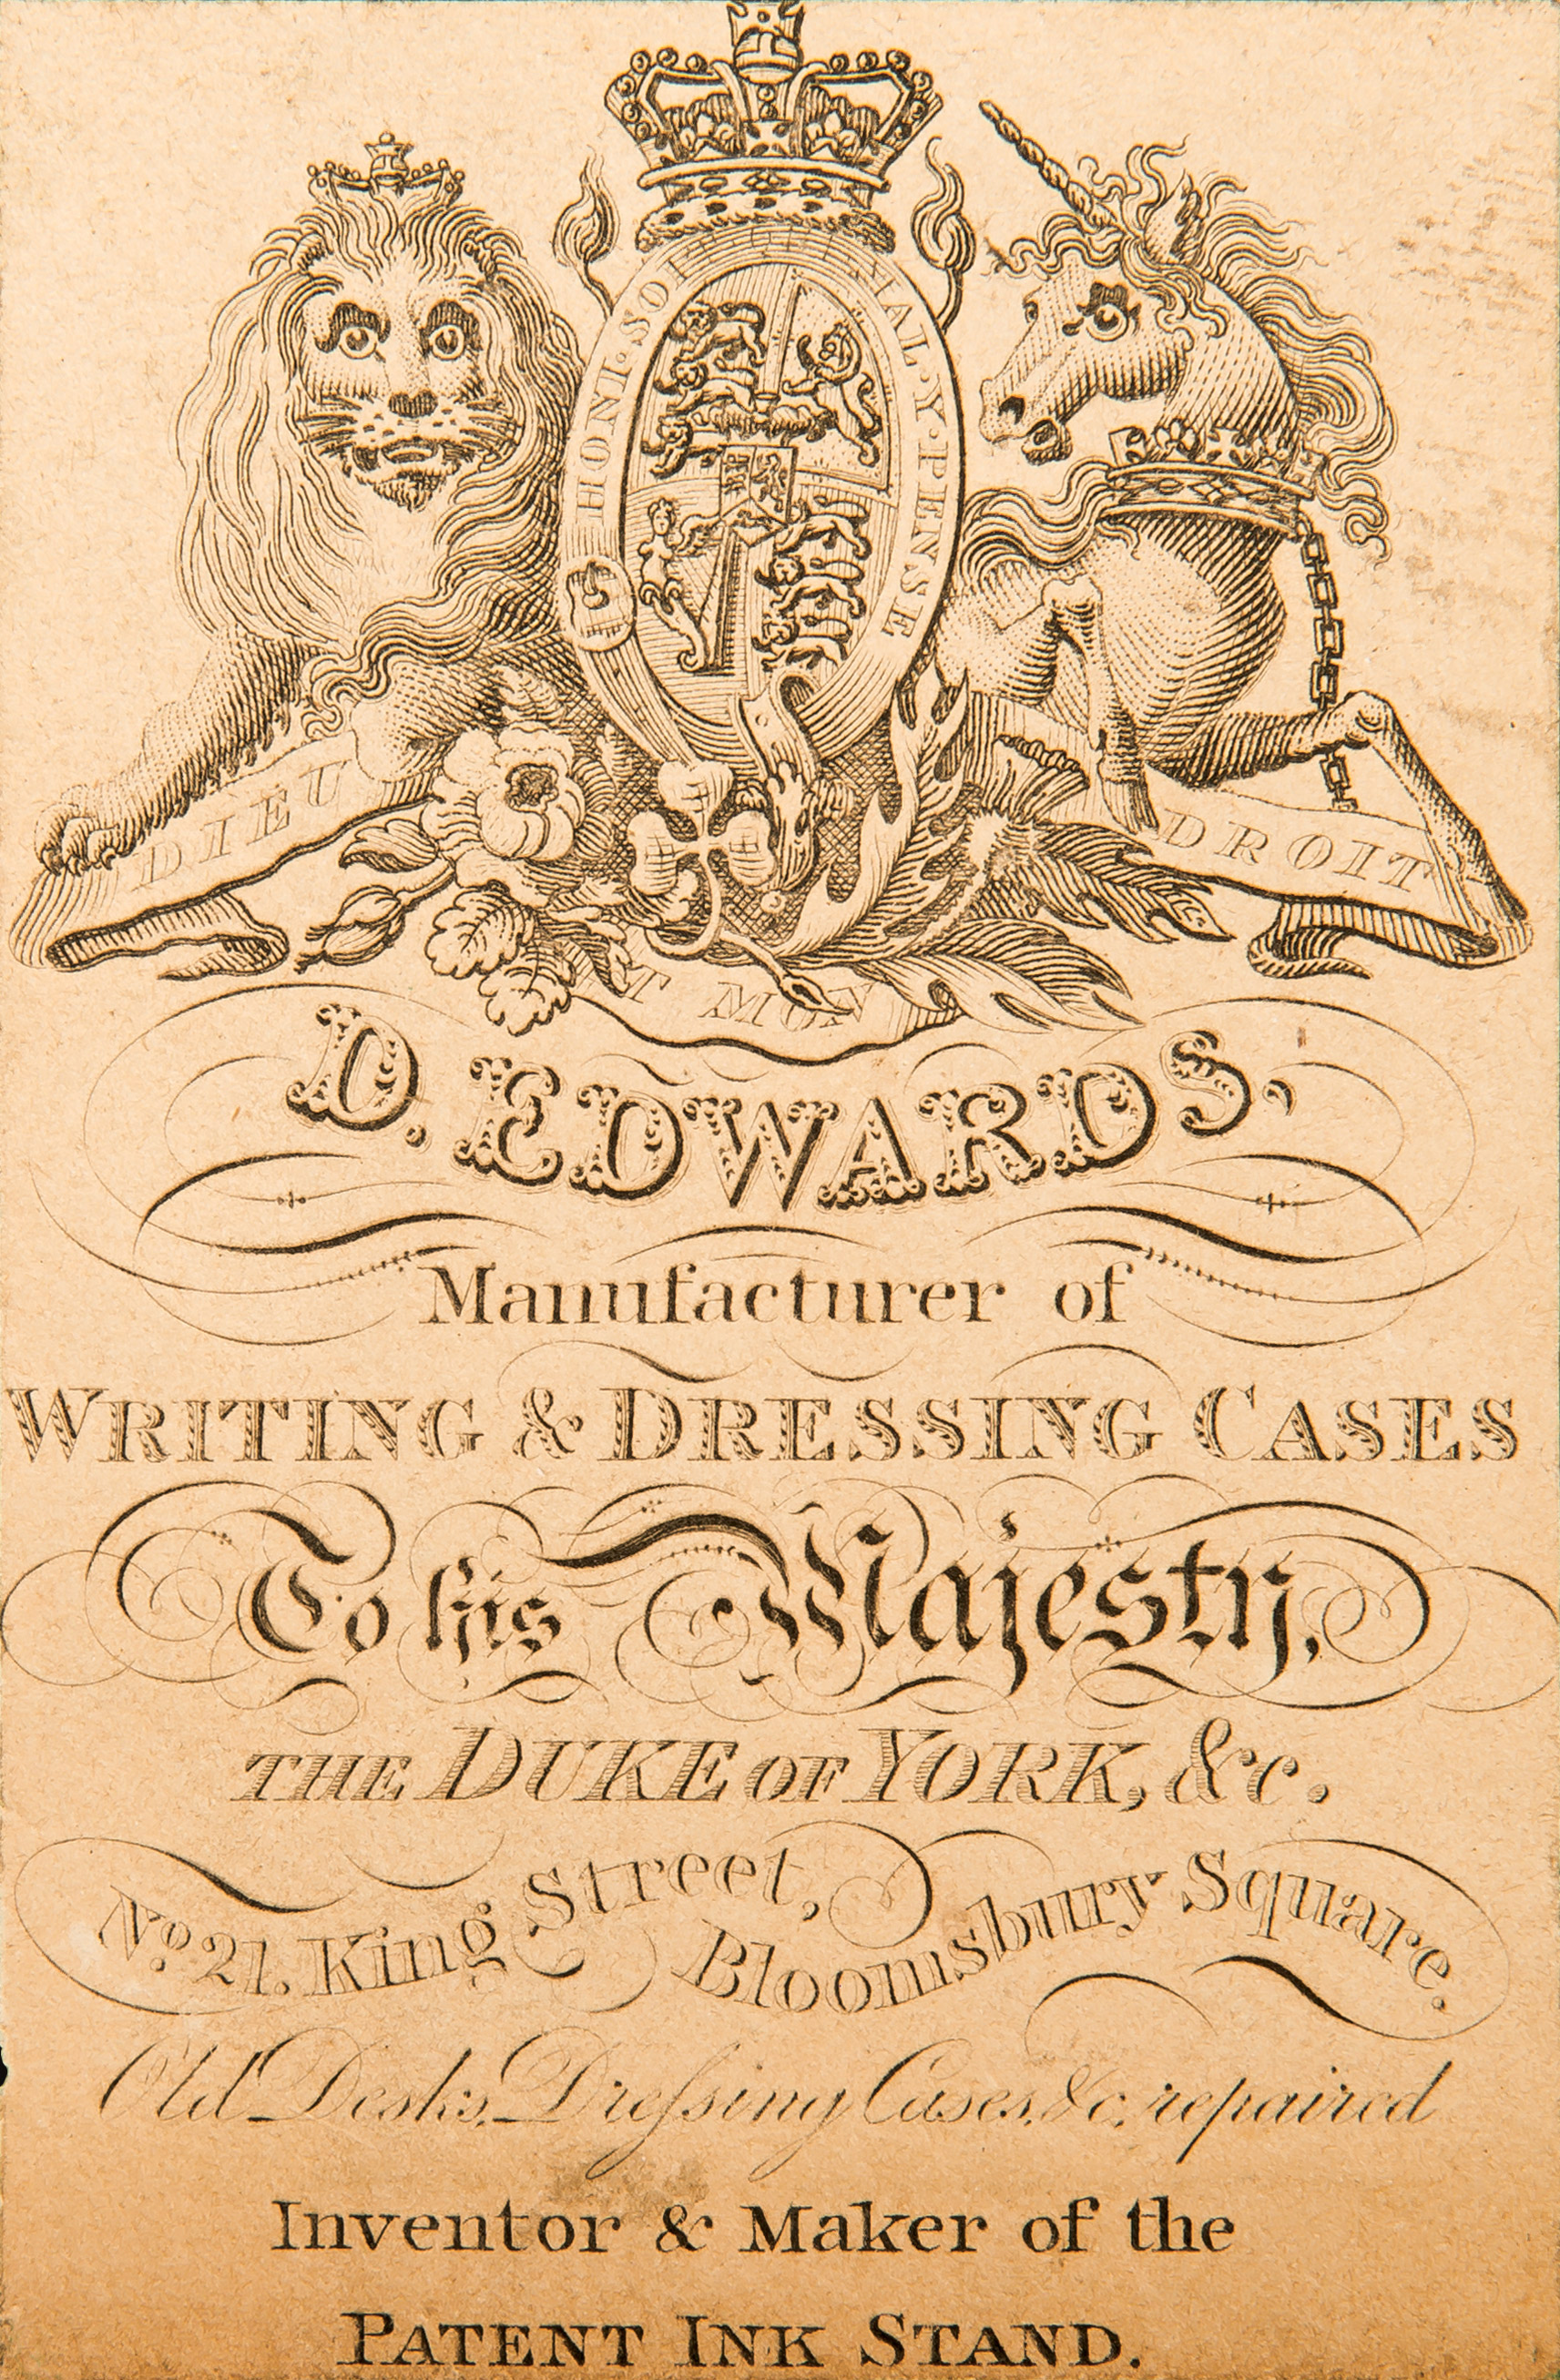 HONI · SOIT QUI MAL · Y · PENSE
DIEU ET MON DROIT
D. EDWARDS.
Manufacturer of
WRITING & DRESSING CASES
To his Majesty,
THE DUKE OF YORK, &c.
No. 21. King Street, Bloomsbury Square.
Old Desks, Dreſsing Cases, &c. repaired
Inventor & Maker of the
PATENT INK STAND.